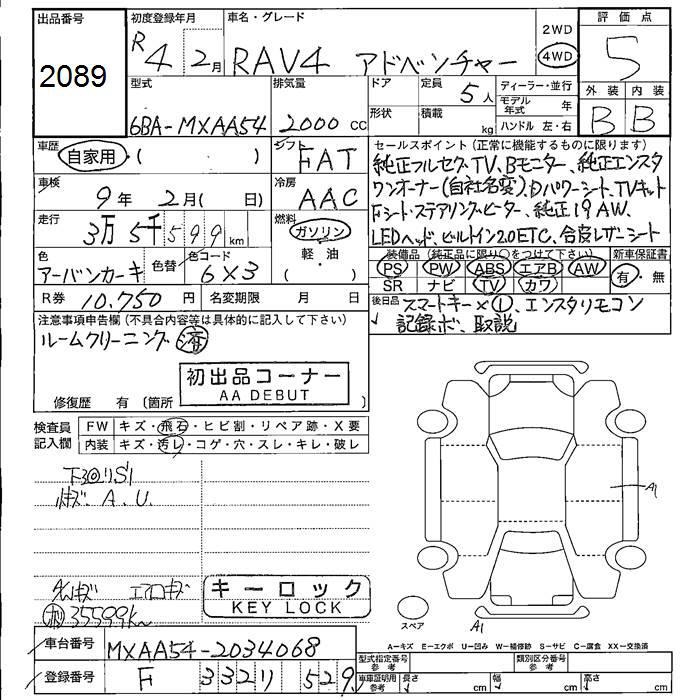 出品番号
2089
初度登録年月
R4 2月
車名・グレード
RAV4 アドベンチャー
2WD
4WD
評価点
5
型式
6BA-MXAA54
排気量
2000 cc
ドア
形状
定員
5人
積載
kg
ディーラー・並行
モデル年式 年
ハンドル 左・右
外装 内装
B B
車歴
自家用・( )
シフト
FAT
セールスポイント(正常に機能するものに限ります)
純正フルセグTV、Bモニター、純正エンスタ
ワンオーナー(自社名変)、Dパワーシート、TVキット
Fシート・ステアリングヒーター、純正19AW、
LEDヘッド、ビルトイン2.0ETC、合皮レザーシート
車検
9年 2月( 日)
冷房
AAC
走行
3万5千599km
燃料
ガソリン
軽・油
( )
色
アーバンカーキ
色替
色コード
6X3
装備品(純正品に限り○をつけて下さい)
PS PW ABS エアB AW
SR ナビ TV カワ
新車保証書
有・無
R券 10.750円
名変期限 月 日
後日品
スマートキー×①、エンスタリモコン
記録ボ、取説
注意事項申告欄(不具合内容等は具体的に記入して下さい)
ルームクリーニング済
初出品コーナー
AA DEBUT
修復歴 有(箇所 )
検査員記入欄
FW キズ・飛石・ヒビ割・リペア跡・X要
内装 キズ・汚レ・コゲ・穴・スレ・キレ・破レ
キズ、A、U、
エアロキズ
35599km
キーロック
KEY LOCK
A1
スペア
A1
A-キズ E-エクボ U-凹み W-補修跡 S-サビ C-腐食 XX-交換済
車台番号
MXAA54-2034068
登録番号
F 332 リ 529
型式指定番号
参考
類別区分番号
参考
車庫証明用
参考
長さ cm
幅 cm
高さ cm